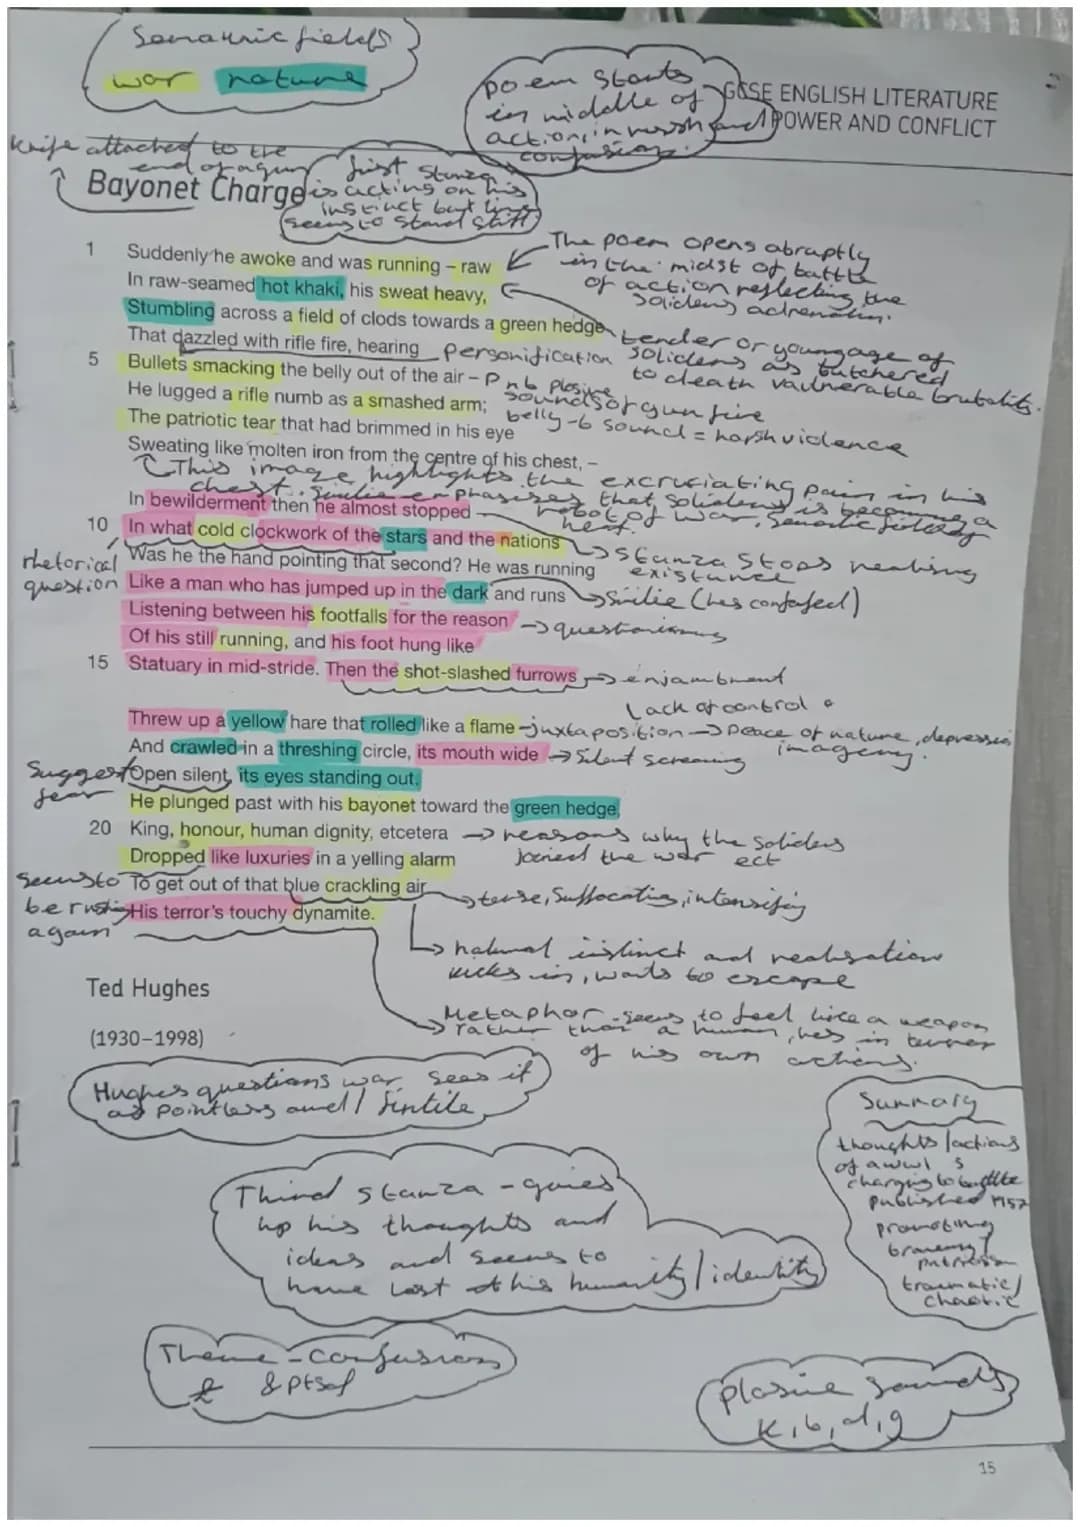 Semantic fields
war nature
poem starts
in middle of
action, in rush and
confusion.
GCSE ENGLISH LITERATURE
POWER AND CONFLICT
Knife attached to the
end of a gun
Bayonet Charge
first stanza
is acting on his
instinct but time
seems to stand still
1 Suddenly he awoke and was running – raw
In raw-seamed hot khaki, his sweat heavy,
Stumbling across a field of clods towards a green hedge
That dazzled with rifle fire, hearing
5 Bullets smacking the belly out of the air –
He lugged a rifle numb as a smashed arm;
The patriotic tear that had brimmed in his eye
Sweating like molten iron from the centre of his chest, –
The poem opens abruptly
in the midst of battle
of action reflecting the
soliders adrenaline.
tender or young age of
soliders as butchered
to death vaulnerable brutality.
Personification
P n b Plosive
sounds of gun fire
belly - b sound = harsh violence
This image highlights the excruciating pain in his
chest. Similie emphasizes that soliders is becoming a
robot of war, semantic field of
heat.
In bewilderment then he almost stopped –
10 In what cold clockwork of the stars and the nations
Was he the hand pointing that second? He was running
Like a man who has jumped up in the dark and runs
Listening between his footfalls for the reason
Of his still running, and his foot hung like
15 Statuary in mid-stride. Then the shot-slashed furrows
rhetorical
question
stanza stops realising
existance
Similie (hes confused)
questioning
enjambment
Lack of control
Threw up a yellow hare that rolled like a flame
And crawled in a threshing circle, its mouth wide
Open silent, its eyes standing out.
He plunged past with his bayonet toward the green hedge,
20 King, honour, human dignity, etcetera
Dropped like luxuries in a yelling alarm
To get out of that blue crackling air
His terror's touchy dynamite.
juxtaposition → Peace of nature, depression
imagery.
Silent screaming
Suggest
fear
reasons why the soliders
joined the war ect
seems to
be rushing
again
tense, suffocating, intensifying
natural instinct and realisation
kicks in, wants to escape
Metaphor - seems to feel like a weapon
rather than a human, hes in terror
of his own actions.
Ted Hughes
(1930–1998)
Hughes questions war, sees it
as pointless and / futile
Summary
thoughts/actions
of a ww1 s
charging to battle
published 1957
promoting
bravery/
patriotism
traumatic/
chaotic
Third stanza - gives
up his thoughts and
ideas and seems to
have lost his humanity/identity
Theme - confusion
& ptsd
plosive sounds
k, b, d, g
15